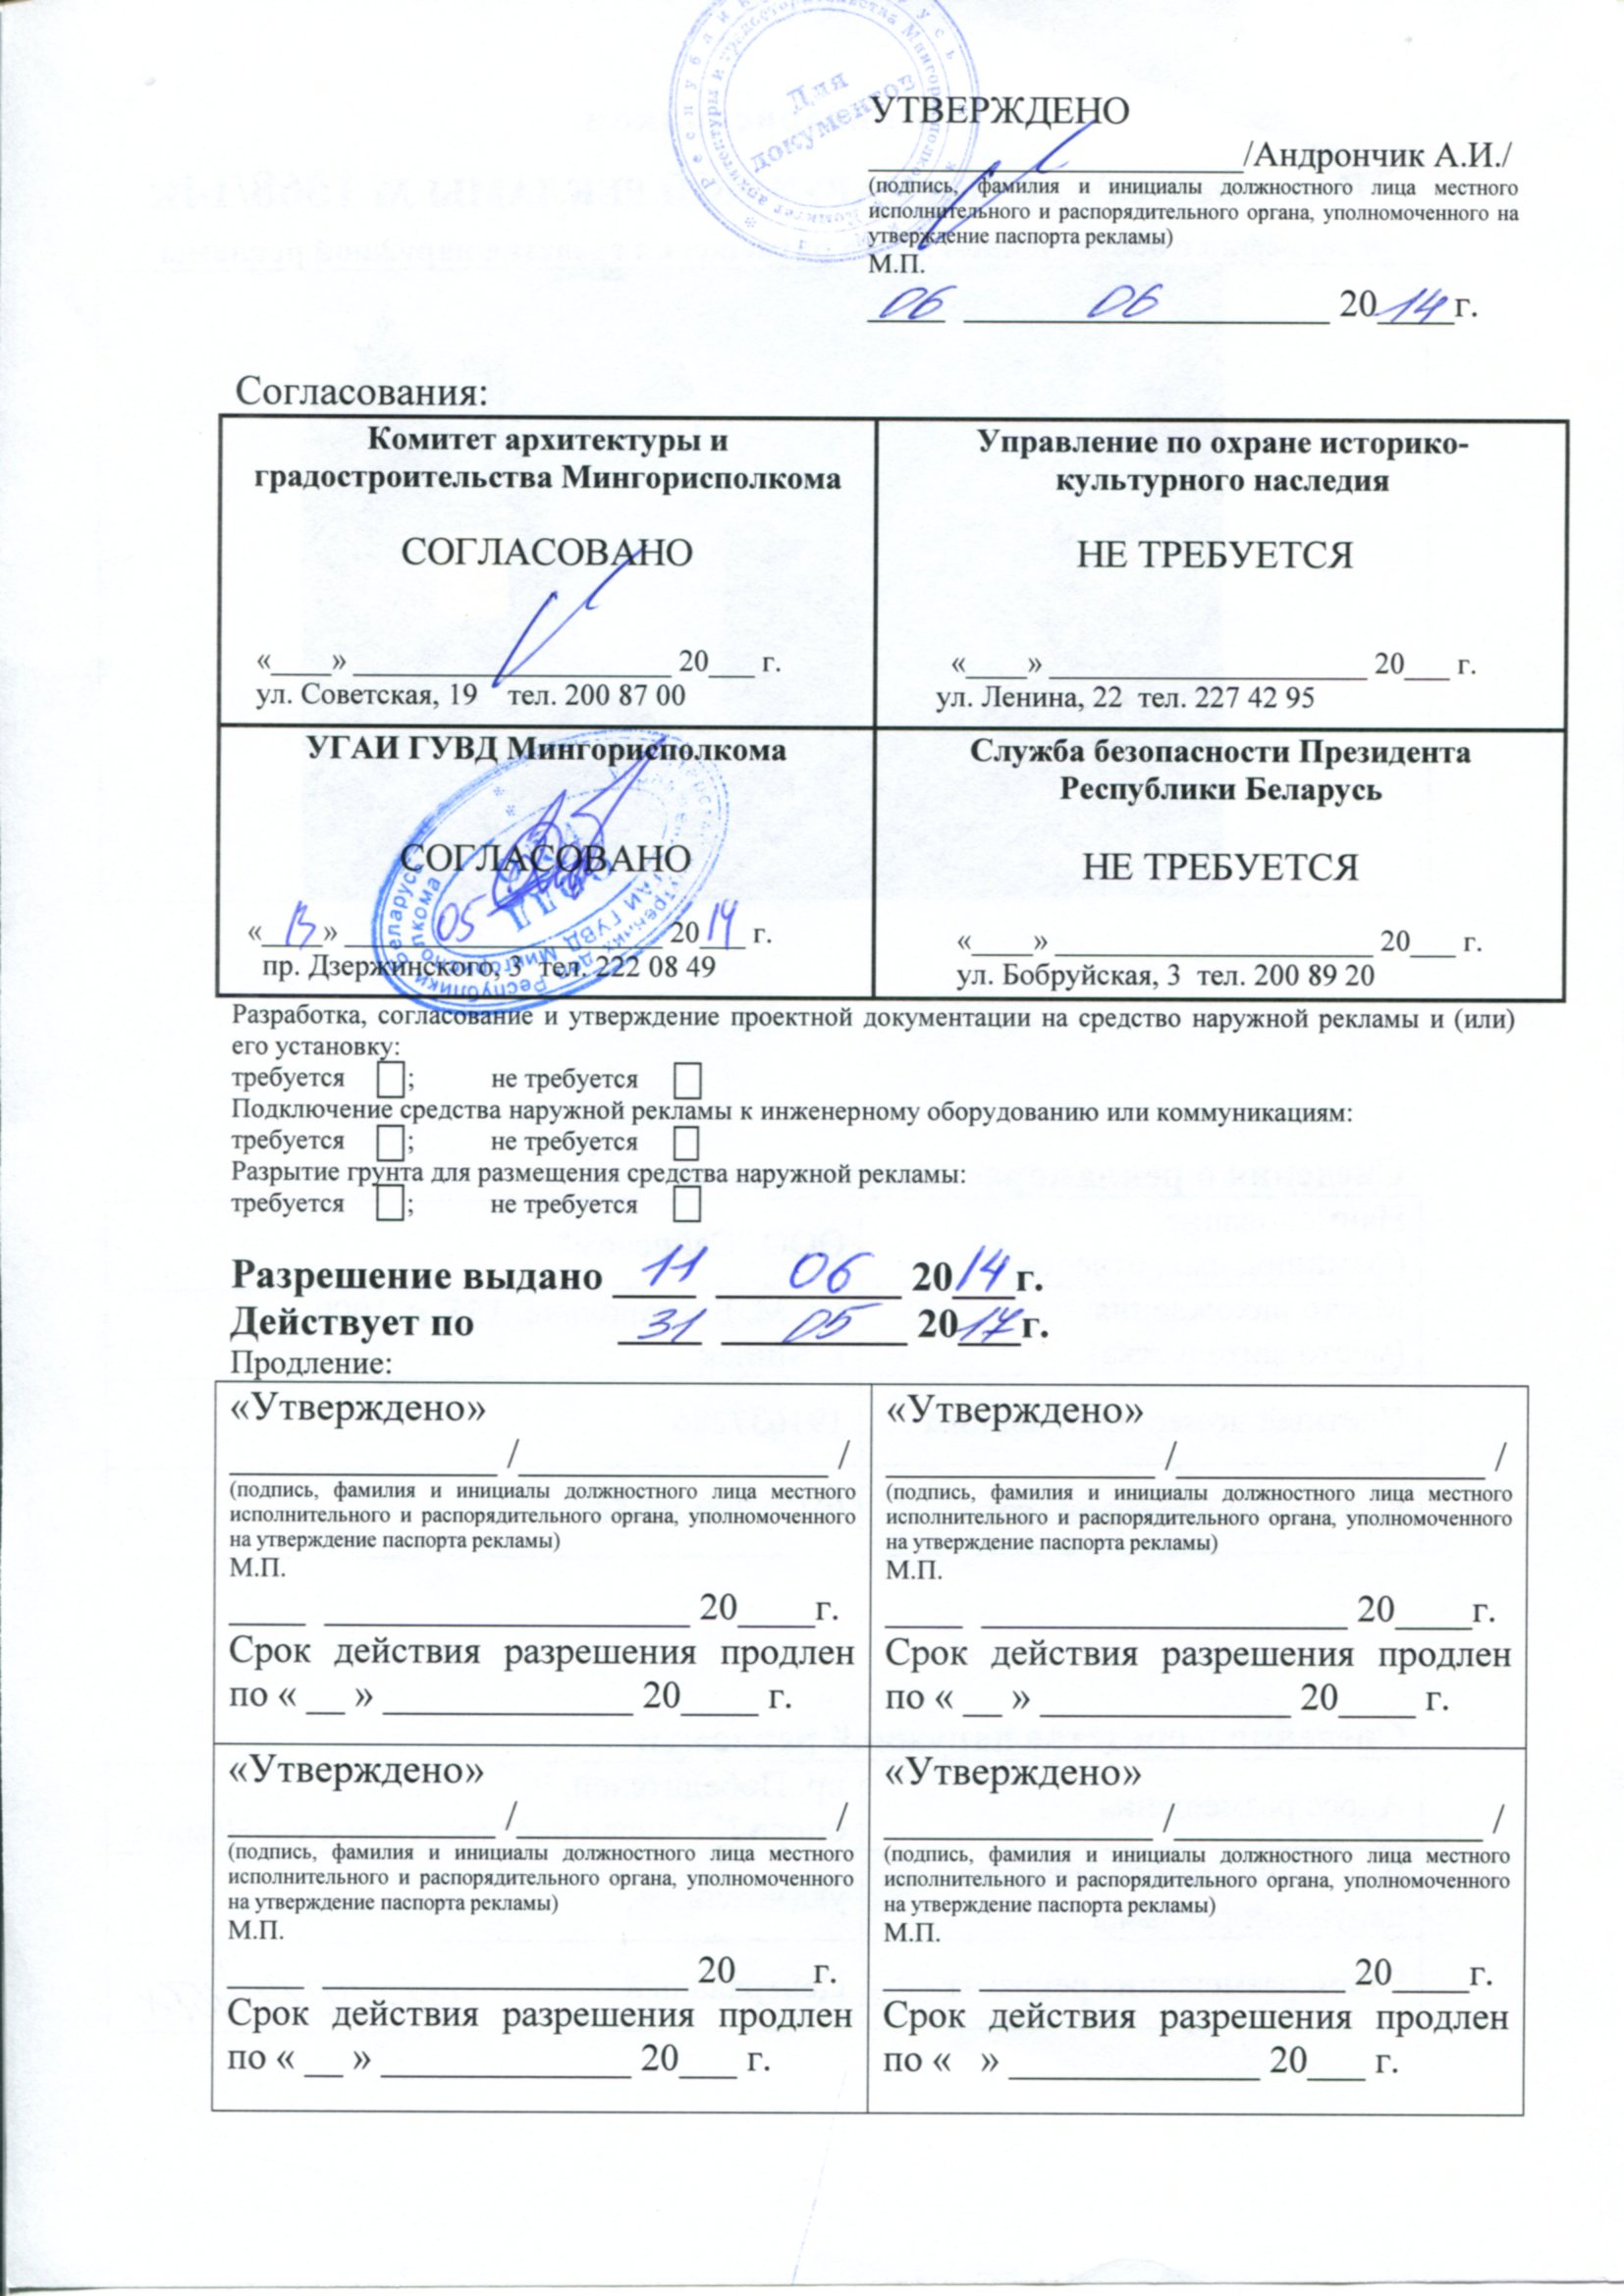 Для
документов
УТВЕРЖДЕНО
____________________/Андрончик А.И./
(подпись, фамилия и инициалы должностного лица местного
исполнительного и распорядительного органа, уполномоченного на
утверждение паспорта рекламы)
М.П.
06 06 2014г.
Согласования:
Комитет архитектуры и
градостроительства Мингорисполкома
СОГЛАСОВАНО
«____» _____________________ 20___ г.
ул. Советская, 19 тел. 200 87 00
Управление по охране историко-
культурного наследия
НЕ ТРЕБУЕТСЯ
«____» _____________________ 20___ г.
ул. Ленина, 22 тел. 227 42 95
УГАИ ГУВД Мингорисполкома
СОГЛАСОВАНО
«13» 05 2014 г.
пр. Дзержинского, 3 тел. 222 08 49
Служба безопасности Президента
Республики Беларусь
НЕ ТРЕБУЕТСЯ
«____» _____________________ 20___ г.
ул. Бобруйская, 3 тел. 200 89 20
Разработка, согласование и утверждение проектной документации на средство наружной рекламы и (или)
его установку:
требуется ; не требуется
Подключение средства наружной рекламы к инженерному оборудованию или коммуникациям:
требуется ; не требуется
Разрытие грунта для размещения средства наружной рекламы:
требуется ; не требуется
Разрешение выдано 11 06 2014г.
Действует по 31 05 2017г.
Продление:
«Утверждено»
______________ /________________ /
(подпись, фамилия и инициалы должностного лица местного
исполнительного и распорядительного органа, уполномоченного
на утверждение паспорта рекламы)
М.П.
____ ___________________ 20____г.
Срок действия разрешения продлен
по « __ » _____________ 20____ г.
«Утверждено»
______________ /________________ /
(подпись, фамилия и инициалы должностного лица местного
исполнительного и распорядительного органа, уполномоченного
на утверждение паспорта рекламы)
М.П.
____ ___________________ 20____г.
Срок действия разрешения продлен
по « __ » _____________ 20____ г.
«Утверждено»
______________ /________________ /
(подпись, фамилия и инициалы должностного лица местного
исполнительного и распорядительного органа, уполномоченного
на утверждение паспорта рекламы)
М.П.
____ ___________________ 20____г.
Срок действия разрешения продлен
по « __ » _____________ 20___ г.
«Утверждено»
______________ /________________ /
(подпись, фамилия и инициалы должностного лица местного
исполнительного и распорядительного органа, уполномоченного
на утверждение паспорта рекламы)
М.П.
____ ___________________ 20____г.
Срок действия разрешения продлен
по « » _____________ 20___ г.